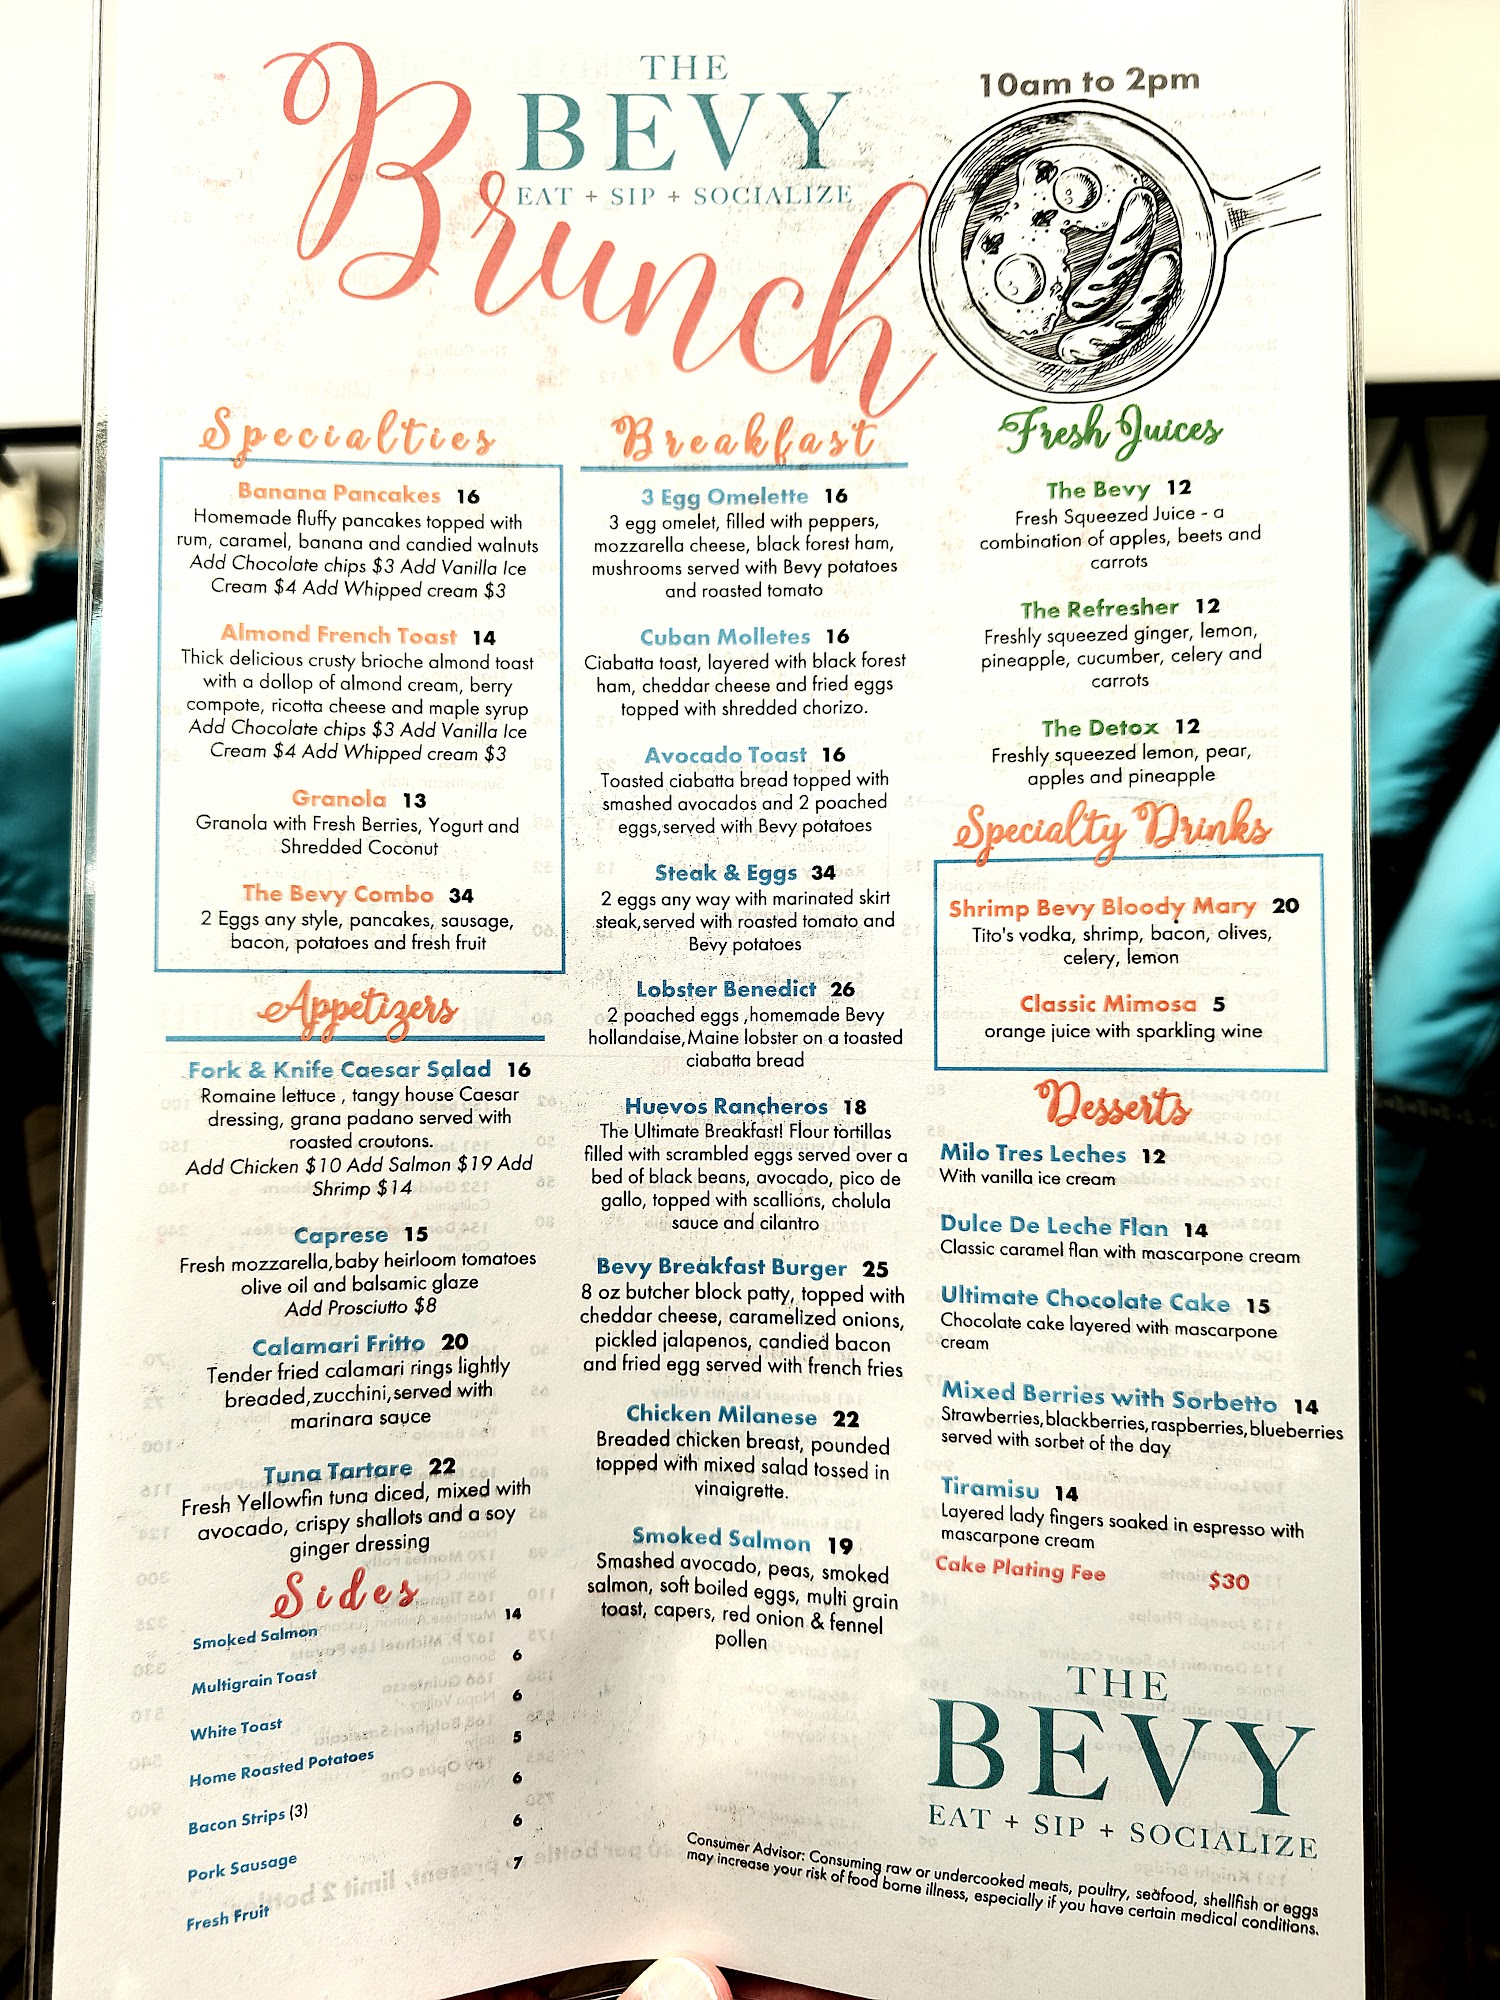 THE
BEVY
EAT + SIP + SOCIALIZE
Brunch
10am to 2pm
Specialties
Banana Pancakes 16
Homemade fluffy pancakes topped with
rum, caramel, banana and candied walnuts
Add Chocolate chips $3 Add Vanilla Ice
Cream $4 Add Whipped cream $3
Almond French Toast 14
Thick delicious crusty brioche almond toast
with a dollop of almond cream, berry
compote, ricotta cheese and maple syrup
Add Chocolate chips $3 Add Vanilla Ice
Cream $4 Add Whipped cream $3
Granola 13
Granola with Fresh Berries, Yogurt and
Shredded Coconut
The Bevy Combo 34
2 Eggs any style, pancakes, sausage,
bacon, potatoes and fresh fruit
Appetizers
Fork & Knife Caesar Salad 16
Romaine lettuce , tangy house Caesar
dressing, grana padano served with
roasted croutons.
Add Chicken $10 Add Salmon $19 Add
Shrimp $14
Caprese 15
Fresh mozzarella,baby heirloom tomatoes
olive oil and balsamic glaze
Add Prosciutto $8
Calamari Fritto 20
Tender fried calamari rings lightly
breaded,zucchini,served with
marinara sauce
Tuna Tartare 22
Fresh Yellowfin tuna diced, mixed with
avocado, crispy shallots and a soy
ginger dressing
Sides
Smoked Salmon 14
Multigrain Toast 6
White Toast 6
Home Roasted Potatoes 5
Bacon Strips (3) 6
Pork Sausage 6
Fresh Fruit 7
Breakfast
3 Egg Omelette 16
3 egg omelet, filled with peppers,
mozzarella cheese, black forest ham,
mushrooms served with Bevy potatoes
and roasted tomato
Cuban Molletes 16
Ciabatta toast, layered with black forest
ham, cheddar cheese and fried eggs
topped with shredded chorizo.
Avocado Toast 16
Toasted ciabatta bread topped with
smashed avocados and 2 poached
eggs,served with Bevy potatoes
Steak & Eggs 34
2 eggs any way with marinated skirt
steak,served with roasted tomato and
Bevy potatoes
Lobster Benedict 26
2 poached eggs ,homemade Bevy
hollandaise,Maine lobster on a toasted
ciabatta bread
Huevos Rancheros 18
The Ultimate Breakfast! Flour tortillas
filled with scrambled eggs served over a
bed of black beans, avocado, pico de
gallo, topped with scallions, cholula
sauce and cilantro
Bevy Breakfast Burger 25
8 oz butcher block patty, topped with
cheddar cheese, caramelized onions,
pickled jalapenos, candied bacon
and fried egg served with french fries
Chicken Milanese 22
Breaded chicken breast, pounded
topped with mixed salad tossed in
vinaigrette.
Smoked Salmon 19
Smashed avocado, peas, smoked
salmon, soft boiled eggs, multi grain
toast, capers, red onion & fennel
pollen
Fresh Juices
The Bevy 12
Fresh Squeezed Juice - a
combination of apples, beets and
carrots
The Refresher 12
Freshly squeezed ginger, lemon,
pineapple, cucumber, celery and
carrots
The Detox 12
Freshly squeezed lemon, pear,
apples and pineapple
Specialty Drinks
Shrimp Bevy Bloody Mary 20
Tito's vodka, shrimp, bacon, olives,
celery, lemon
Classic Mimosa 5
orange juice with sparkling wine
Desserts
Milo Tres Leches 12
With vanilla ice cream
Dulce De Leche Flan 14
Classic caramel flan with mascarpone cream
Ultimate Chocolate Cake 15
Chocolate cake layered with mascarpone
cream
Mixed Berries with Sorbetto 14
Strawberries,blackberries,raspberries,blueberries
served with sorbet of the day
Tiramisu 14
Layered lady fingers soaked in espresso with
mascarpone cream
Cake Plating Fee $30
THE
BEVY
EAT + SIP + SOCIALIZE
Consumer Advisor: Consuming raw or undercooked meats, poultry, seafood, shellfish or eggs
may increase your risk of food borne illness, especially if you have certain medical conditions.